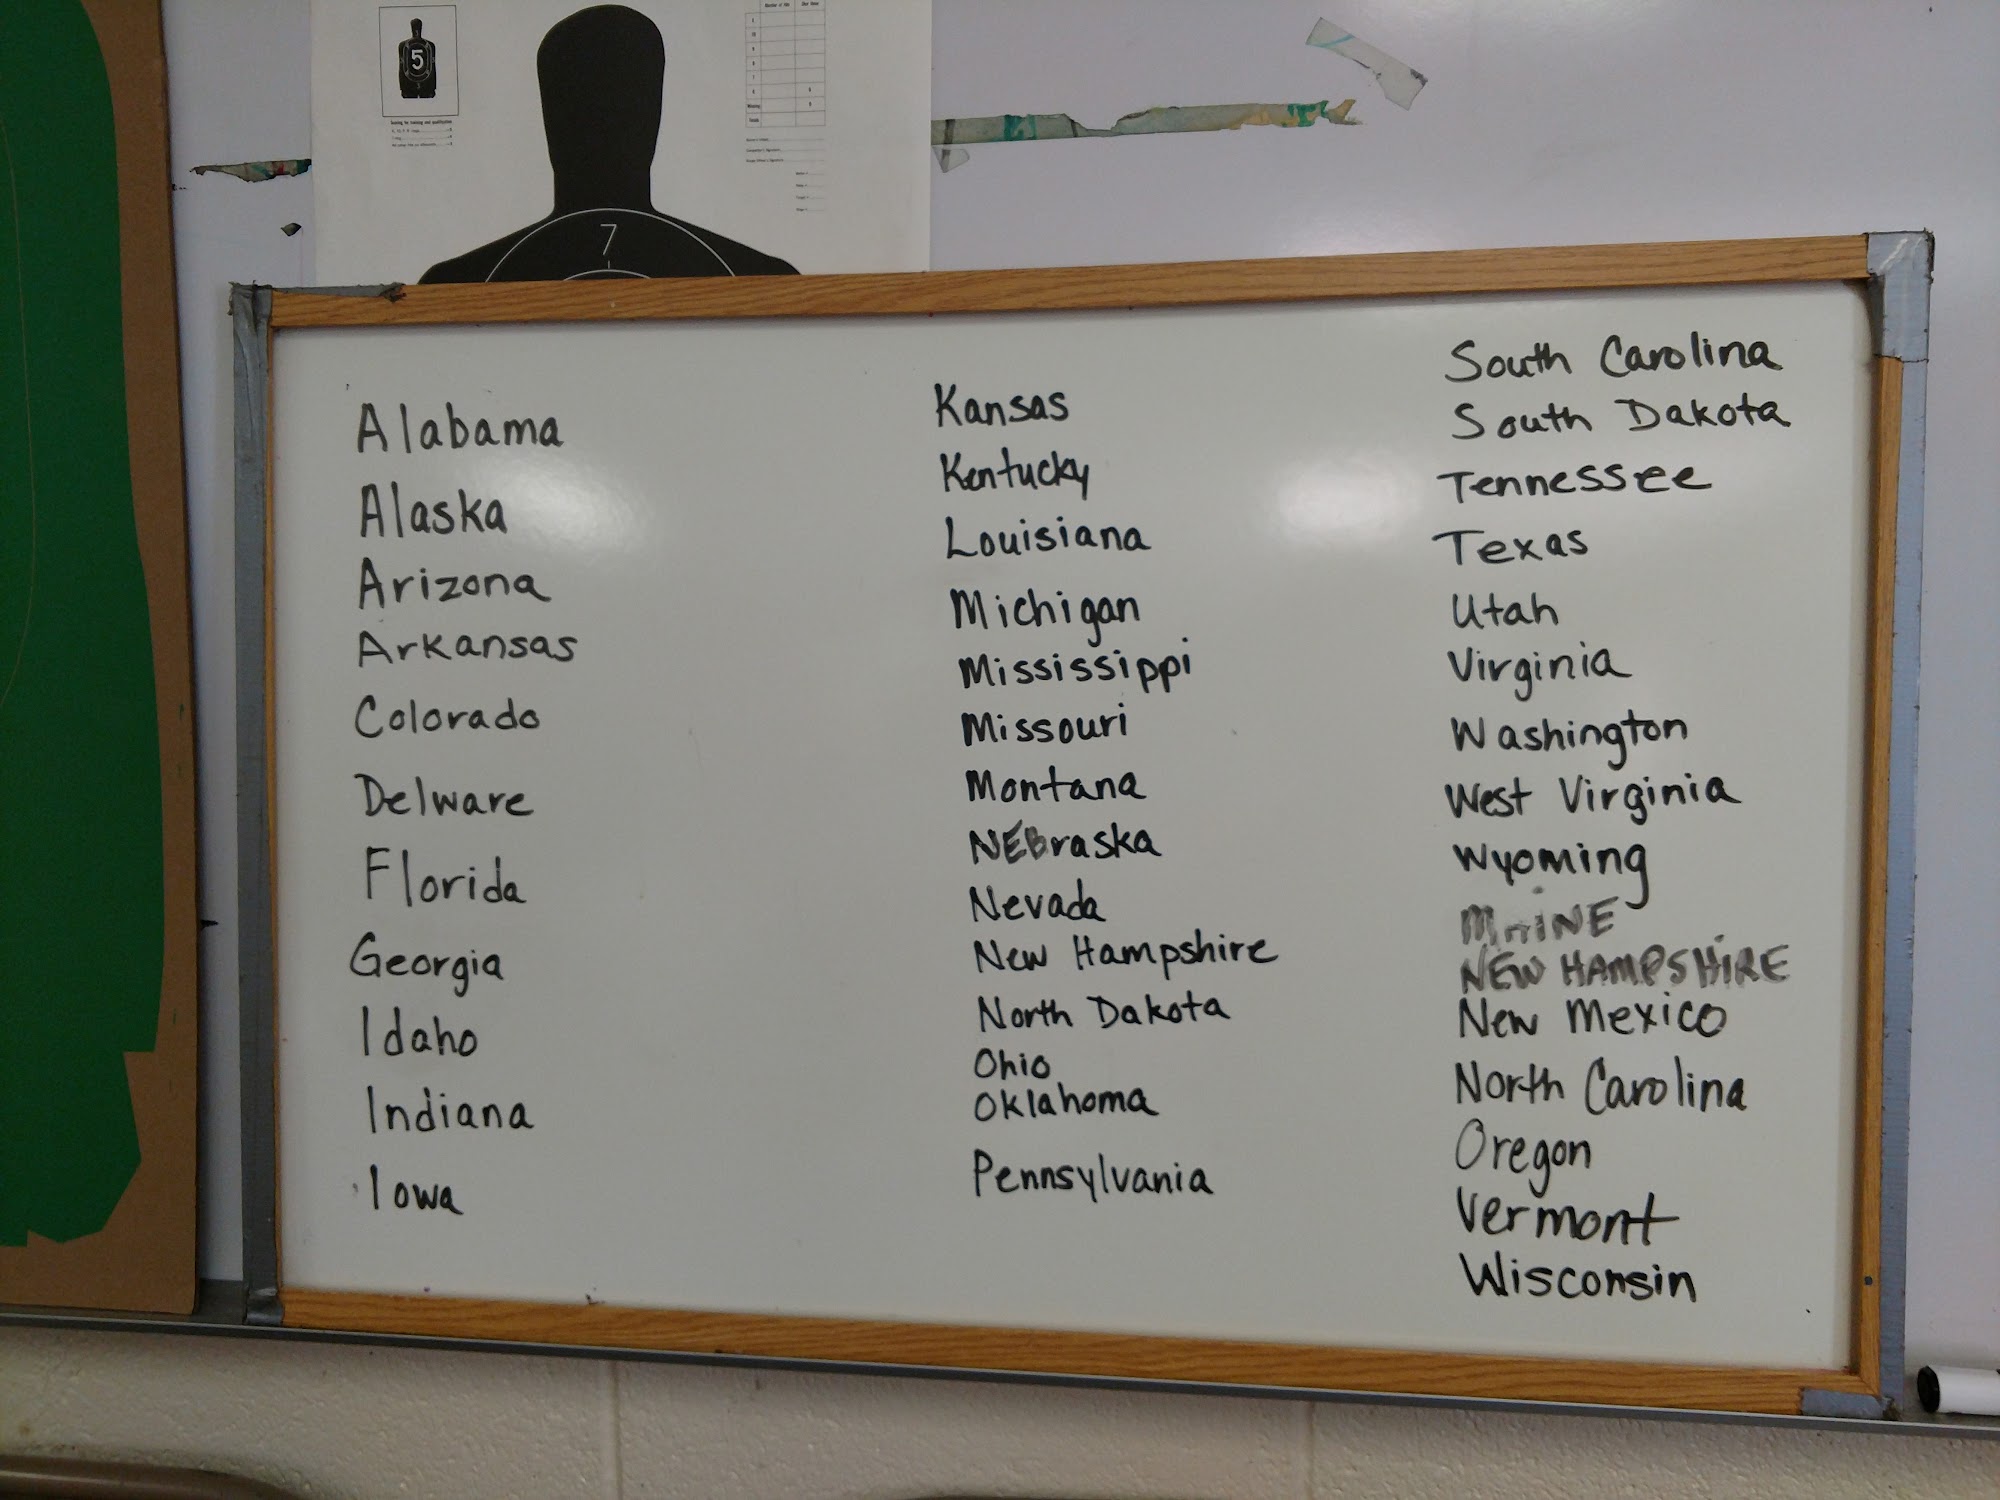 5
7
Alabama
Alaska
Arizona
Arkansas
Colorado
Delware
Florida
Georgia
Idaho
Indiana
Iowa
Kansas
Kentucky
Louisiana
Michigan
Mississippi
Missouri
Montana
NEBraska
Nevada
New Hampshire
North Dakota
Ohio
Oklahoma
Pennsylvania
South Carolina
South Dakota
Tennessee
Texas
Utah
Virginia
Washington
West Virginia
Wyoming
MAINE
NEW HAMPSHIRE
New Mexico
North Carolina
Oregon
Vermont
Wisconsin